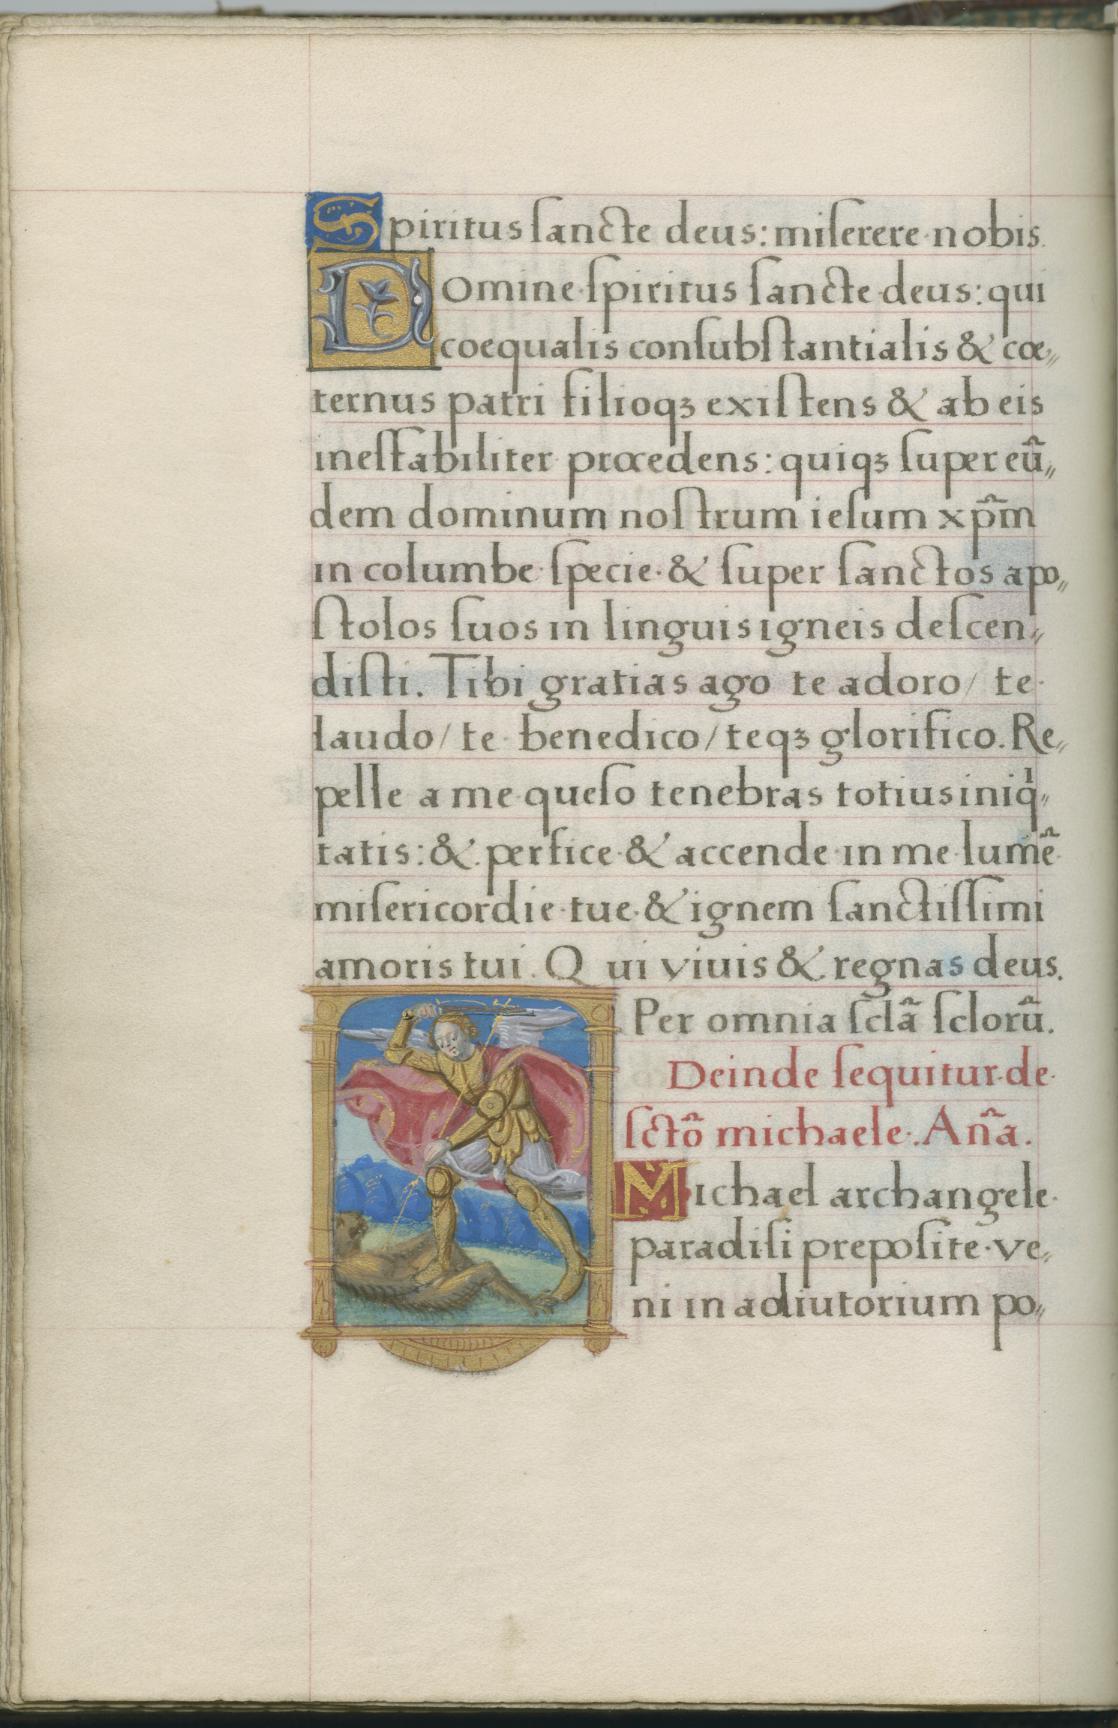 Spiritus ſancte deus: miſerere nobis.
Domine ſpiritus ſancte deus: qui
coequalis conſubſtantialis & coe„
ternus patri filioqꝫ exiſtens & ab eis
ineffabiliter procedens: quiqꝫ ſuper eũ„
dem dominum noſtrum ieſum xp̃m
in columbe ſpecie & ſuper ſanctos apo„
ſtolos ſuos in linguis igneis deſcen„
diſti. Tibi gratias ago te adoro/ te
laudo/ te benedico/ teqꝫ glorifico. Re„
pelle a me queſo tenebras totius iniqⁱ„
tatis: & perfice & accende in me lumẽ
miſericordie tue & ignem ſanctiſſimi
amoris tui. Qui viuis & regnas deus.
Per omnia ſclã ſclorũ.
Deinde ſequitur de
ſctõ michaele. Añа.
Michael archangele
paradiſi prepoſite ve„
ni in adiutorium po„